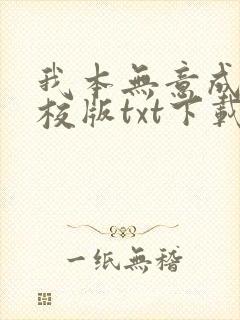 我本無意成
校版txt下載
一纸無稽